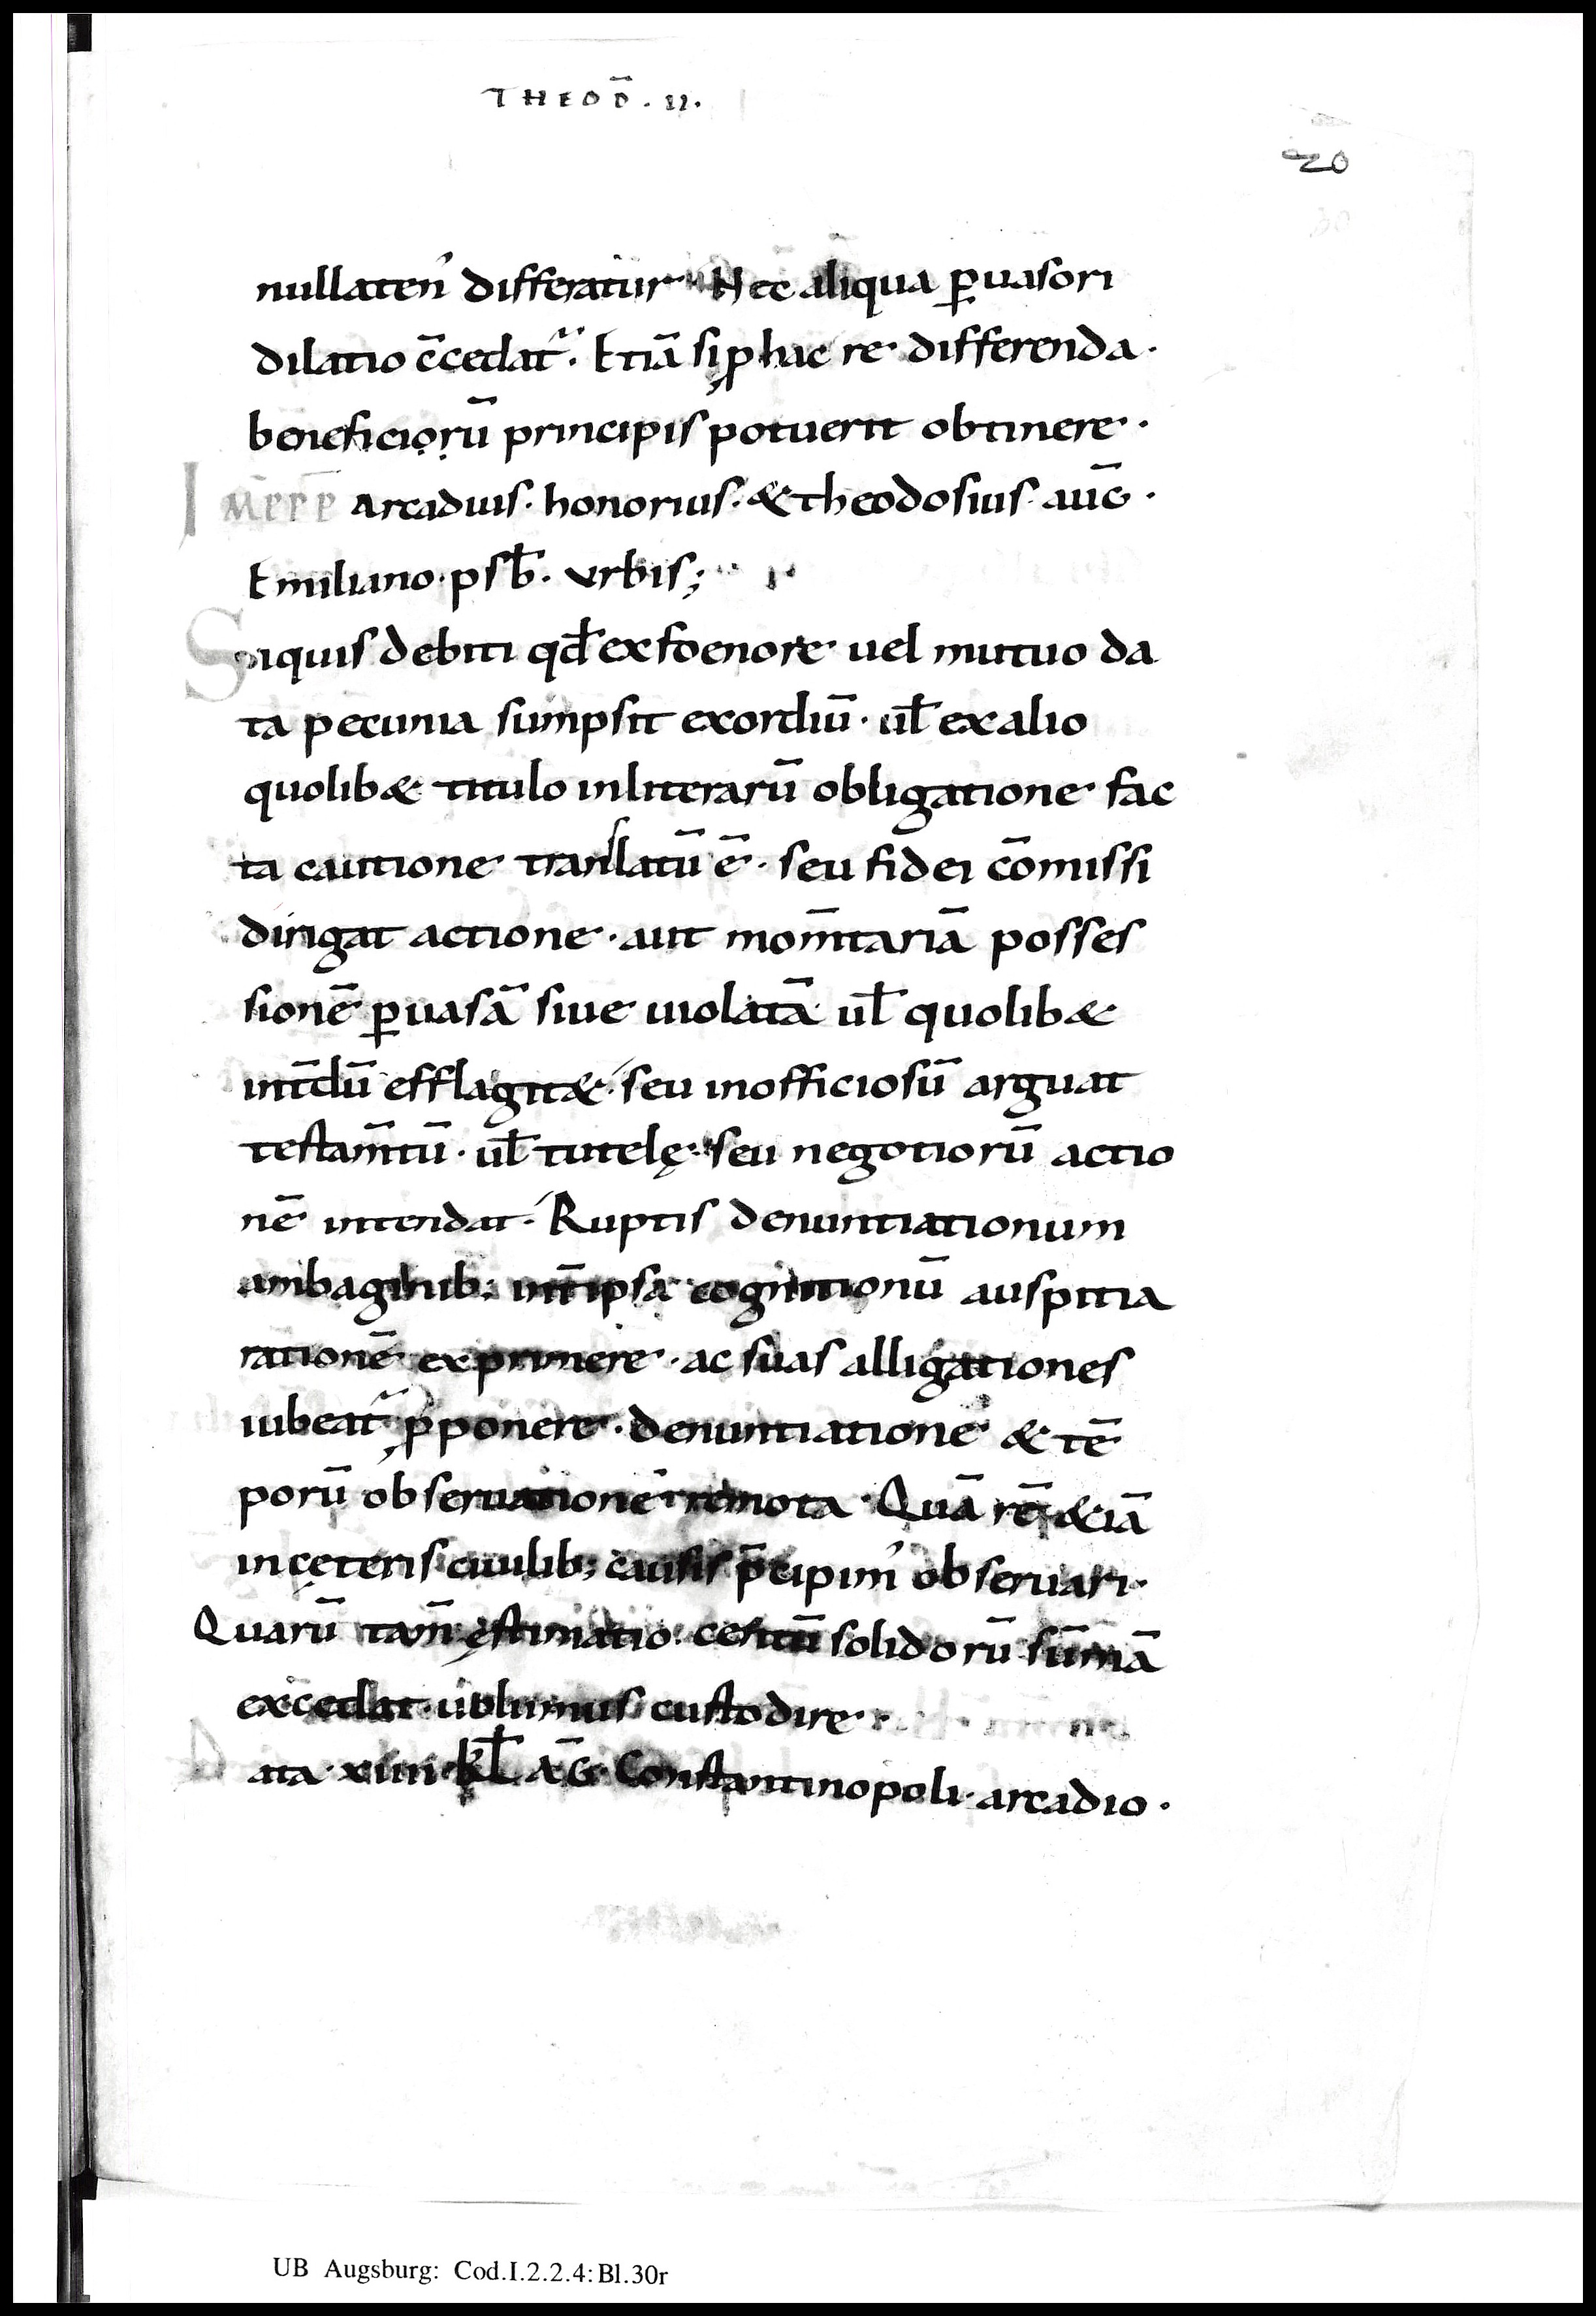 THEOD̄. II.
30
nullaten' differatur. Nec aliqua p̄uasori
dilatio c̄cedat̃. Etiā si ꝓ hac re differenda.
beneficiorū principis potuerit obtinere.
IMPPP Arcadius. honorius. & theodosius. auḠ.
Emiliano. psb̄. Vrbis;
Siquis debiti qđ ex foenore uel mutuo da
ta pecunia sumpsit exordiū. ul̄ ex alio
quolib& titulo in literarū obligatione fac
ta cautione translatū ē. seu fidei c̄omissi
dirigat actione. aut mom̄tariā posses
sionē p̄uasā siue uiolatā ul̄ quolib&
int̄dū efflagit&. seu inofficiosū arguat
testam̄tū. ul̄ tutelę. seu negotiorū actio
nē intendat. Ruptis denuntiationum
ambaginib; int̄ ipsa cognitionū auspitia
rationē exprimere. ac suas alligationes
iubeat̃ ꝓponere. denuntiatione & tē
porū obseruatione remota. Quā rē &iā
in ceteris ciuilib; causis p̄cipim' obseruari.
Quarū tam̄ ęstimatio. centū solidorū sūmā
excedat. uolumus custodire.
Data. xiiii. kl̄. AḠ. Constantinopoli. arcadio.
UB Augsburg: Cod.I.2.2.4: Bl.30r